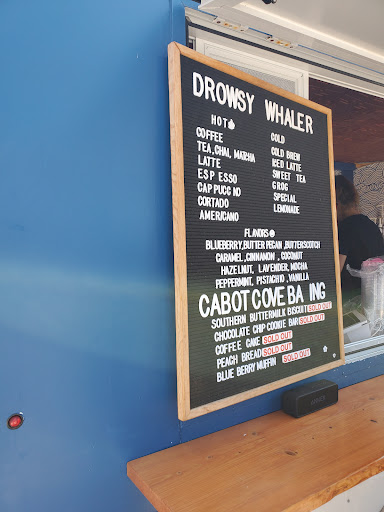 DROWSY WHALER
HOT
COFFEE
TEA, CHAI, MATCHA
LATTE
ESP ESSO
CAPPUCC NO
CORTADO
AMERICANO
COLD
COLD BREW
ICED LATTE
SWEET TEA
GROG
SPECIAL
LEMONADE
FLAVORS
BLUEBERRY, BUTTER PECAN, BUTTERSCOTCH
CARAMEL, CINNAMON, COCONUT
HAZELNUT, LAVENDER, MOCHA
PEPPERMINT, PISTACHIO, VANILLA
CABOT COVE BA ING
SOUTHERN BUTTERMILK BISCUIT SOLD OUT
CHOCOLATE CHIP COOKIE BAR SOLD OUT
COFFEE CAKE SOLD OUT
PEACH BREAD SOLD OUT
BLUE BERRY MUFFIN SOLD OUT